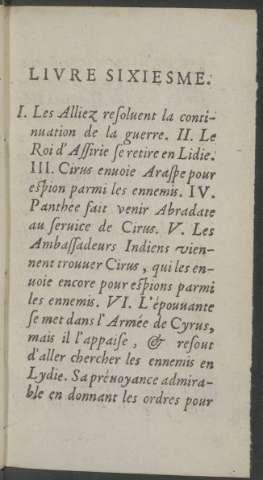 LIVRE SIXIESME.
I. Les Alliez resoluent la conti-
nuation de la guerre. II. Le
Roi d'Assirie se retire en Lidie.
III. Cirus enuoie Araspe pour
espion parmi les ennemis. IV.
Panthée fait venir Abradate
au seruice de Cirus. V. Les
Ambassadeurs Indiens vien-
nent trouuer Cirus, qui les en-
uoie encore pour espions parmi
les ennemis. VI. L'épouuante
se met dans l'Armée de Cyrus,
mais il l'appaise, & resout
d'aller chercher les ennemis en
Lydie. Sa préuoyance admira-
ble en donnant les ordres pour